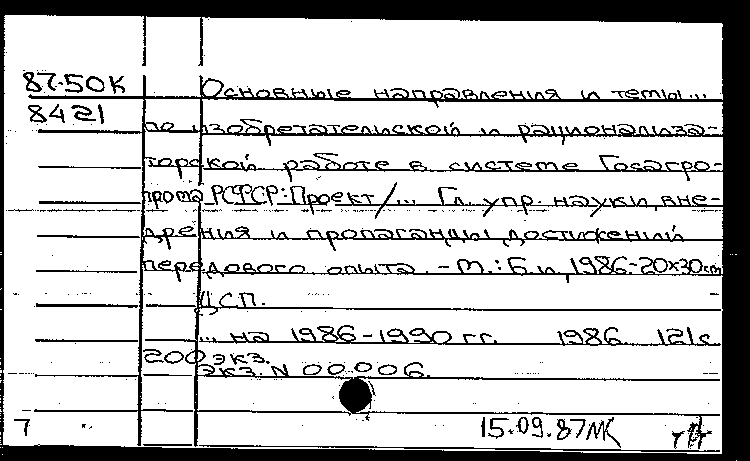 87-50К Основные направления и темы...
8421 по изобретательской и рационализа-
торской работе в системе Госагро-
прома РСФСР: Проект/... Гл. упр. науки, вне-
дрения и пропаганды достижений
передового опыта. - М.: Б.и, 1986.-20х30см
ЦСП.
... на 1986-1990 гг. 1986. 121с
200 экз.
Экз. N 00006.
7 15.09.87